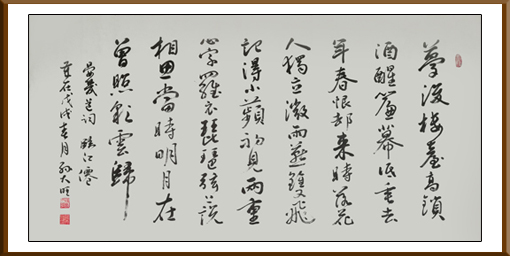 夢後樓臺高鎖
酒醒簾幕低垂去
年春恨却来時落花
人獨立微雨燕雙飛
記得小蘋初見兩重
心字羅衣琵琶弦上說
相思當時明月在
曾照彩雲歸
晏幾道詞 臨江僊
戊戌春月